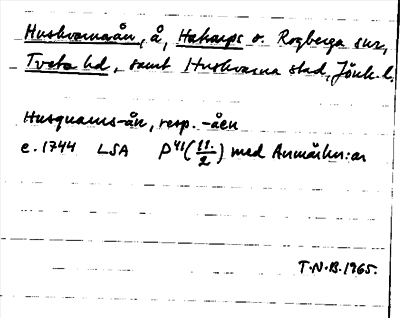 Huskvarnaån, å, Hakarps o. Rogberga snr,
Tveta hd, samt Huskvarna stad, Jönk. l.
Husquarns-ån, resp. -åen
c. 1744 LSA P 41 (11/2) med Anmärkn:ar
T.N.B. 1965.